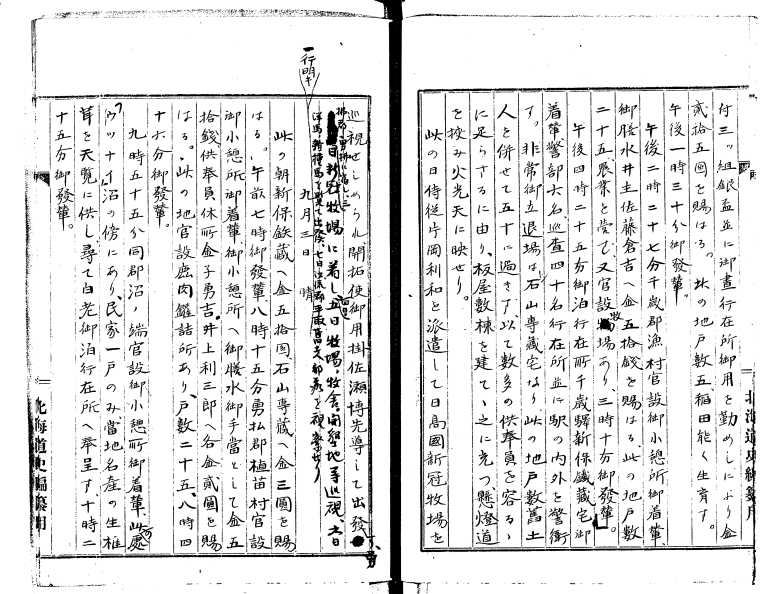 付三ッ組銀盃並に御晝行在所御用を勤めしにより金
貳拾五圓を賜はる。此の地戸数五、稲田能く生育す。
午後一時三十分御發輦。
午後二時二十七分千歳郡漁村官設御小憩所御着輦
御膳水井主佐藤倉吉へ金五拾錢を賜はる此の地戸数
二十五農業を営む又官設牧場あり三時十分御發輦。
午後四時二十五分御泊行在所千歳驛新保鐵蔵宅御
着輦警部六名巡査四十名行在所並に駅の内外を警衛
す。非常御立退場は石山専蔵宅なり此の地戸数舊土
人を併せて五十に過きす、以て数多の供奉員を容るゝ
に足らさるに由り、板屋数棟を建てゝ之に充つ、懸燈道
を挟み火光天に映せり。
此の日侍從片岡利和を派遣して日高國新冠牧場を
巡視せしめられ開拓使御用掛佐瀬博先導して出發
日新冠牧場に着し五日牧場、牧舎、開墾地等巡視、六日
九月三日 晴
一行明キ
此の朝新保鉄蔵へ金五拾圓石山専蔵へ金三圓を賜
はる。午前七時御發輦、八時十五分勇払郡植苗村官設
御小憩所御着輦御小憩所へ御膳水御手當として金五
拾錢供奉員休所金子勇吉、井上利三郎へ各金貳圓を賜
はる。此の地官設鹿肉罐詰所あり、戸数二十五、八時四
十六分御發輦。
九時五十五分同郡沼ノ端官設御小憩所御着輦、此處
ウツナイ沼の傍にあり、民家一戸のみ當地名産の生椎
茸を天覧に供し尋て白老御泊行在所へ奉呈す、十時二
十五分御發輦。
北海道史編纂用
北海道史編纂用